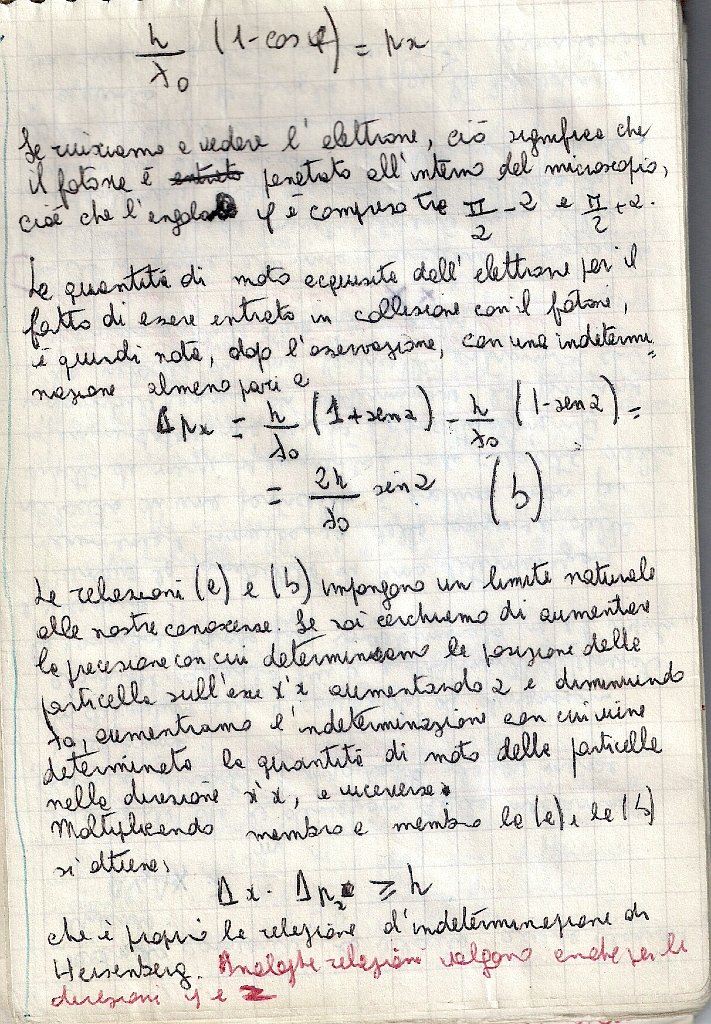 h/λ₀ (1-cosφ) = px
Se riusciamo a vedere l'elettrone, ciò significa che
il fotone è entrato penetrato all'interno del microscopio,
cioè che l'angolo φ è compreso tra π/2 - α e π/2 + α.
La quantità di moto acquisita dall'elettrone per il
fatto di essere entrato in collisione con il fotone,
è quindi nota, dopo l'osservazione, con una indetermi
nazione almeno pari a
Δpx = h/λ₀ (1+senα) - h/λ₀ (1-senα) =
= 2h/λ₀ sinα (b)
Le relazioni (a) e (b) impongono un limite naturale
alle nostre conoscenze. Se noi cerchiamo di aumentare
la precisione con cui determiniamo la posizione della
particella sull'asse x'x aumentando α e diminuendo
λ₀, aumentiamo l'indeterminazione con cui viene
determinata la quantità di moto della particella
nella direzione x'x, e viceversa.
Moltiplicando membro a membro la (a) e la (b)
si ottiene:
Δx · Δpx ≥ h
che è proprio la relazione d'indeterminazione di
Heisenberg. Analoghe relazioni valgono anche per le
direzioni y e z